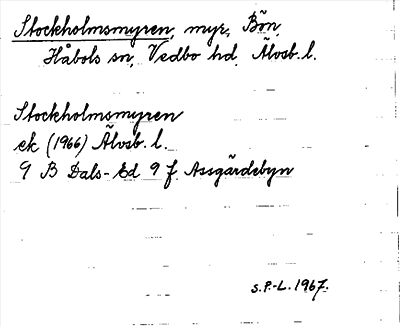 Stockholmsmyren, myr, Bön,
Håbols sn, Vedbo hd, Älvsb. l.
Stockholmsmyren
ek (1966) Älvsb. l.
9 B Dals-Ed 9 f Assgärdebyn
S.P-L. 1967.